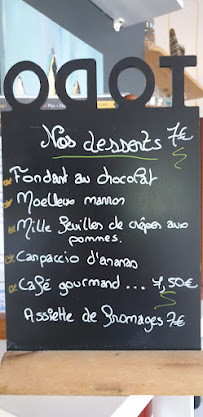 TODO
Nos desserts 7€
Fondant au chocolat
Moelleux marron
Mille feuilles de crêpes aux
pommes.
Carpaccio d'ananas
Café gourmand ... 7,50€
Assiette de fromages 7€